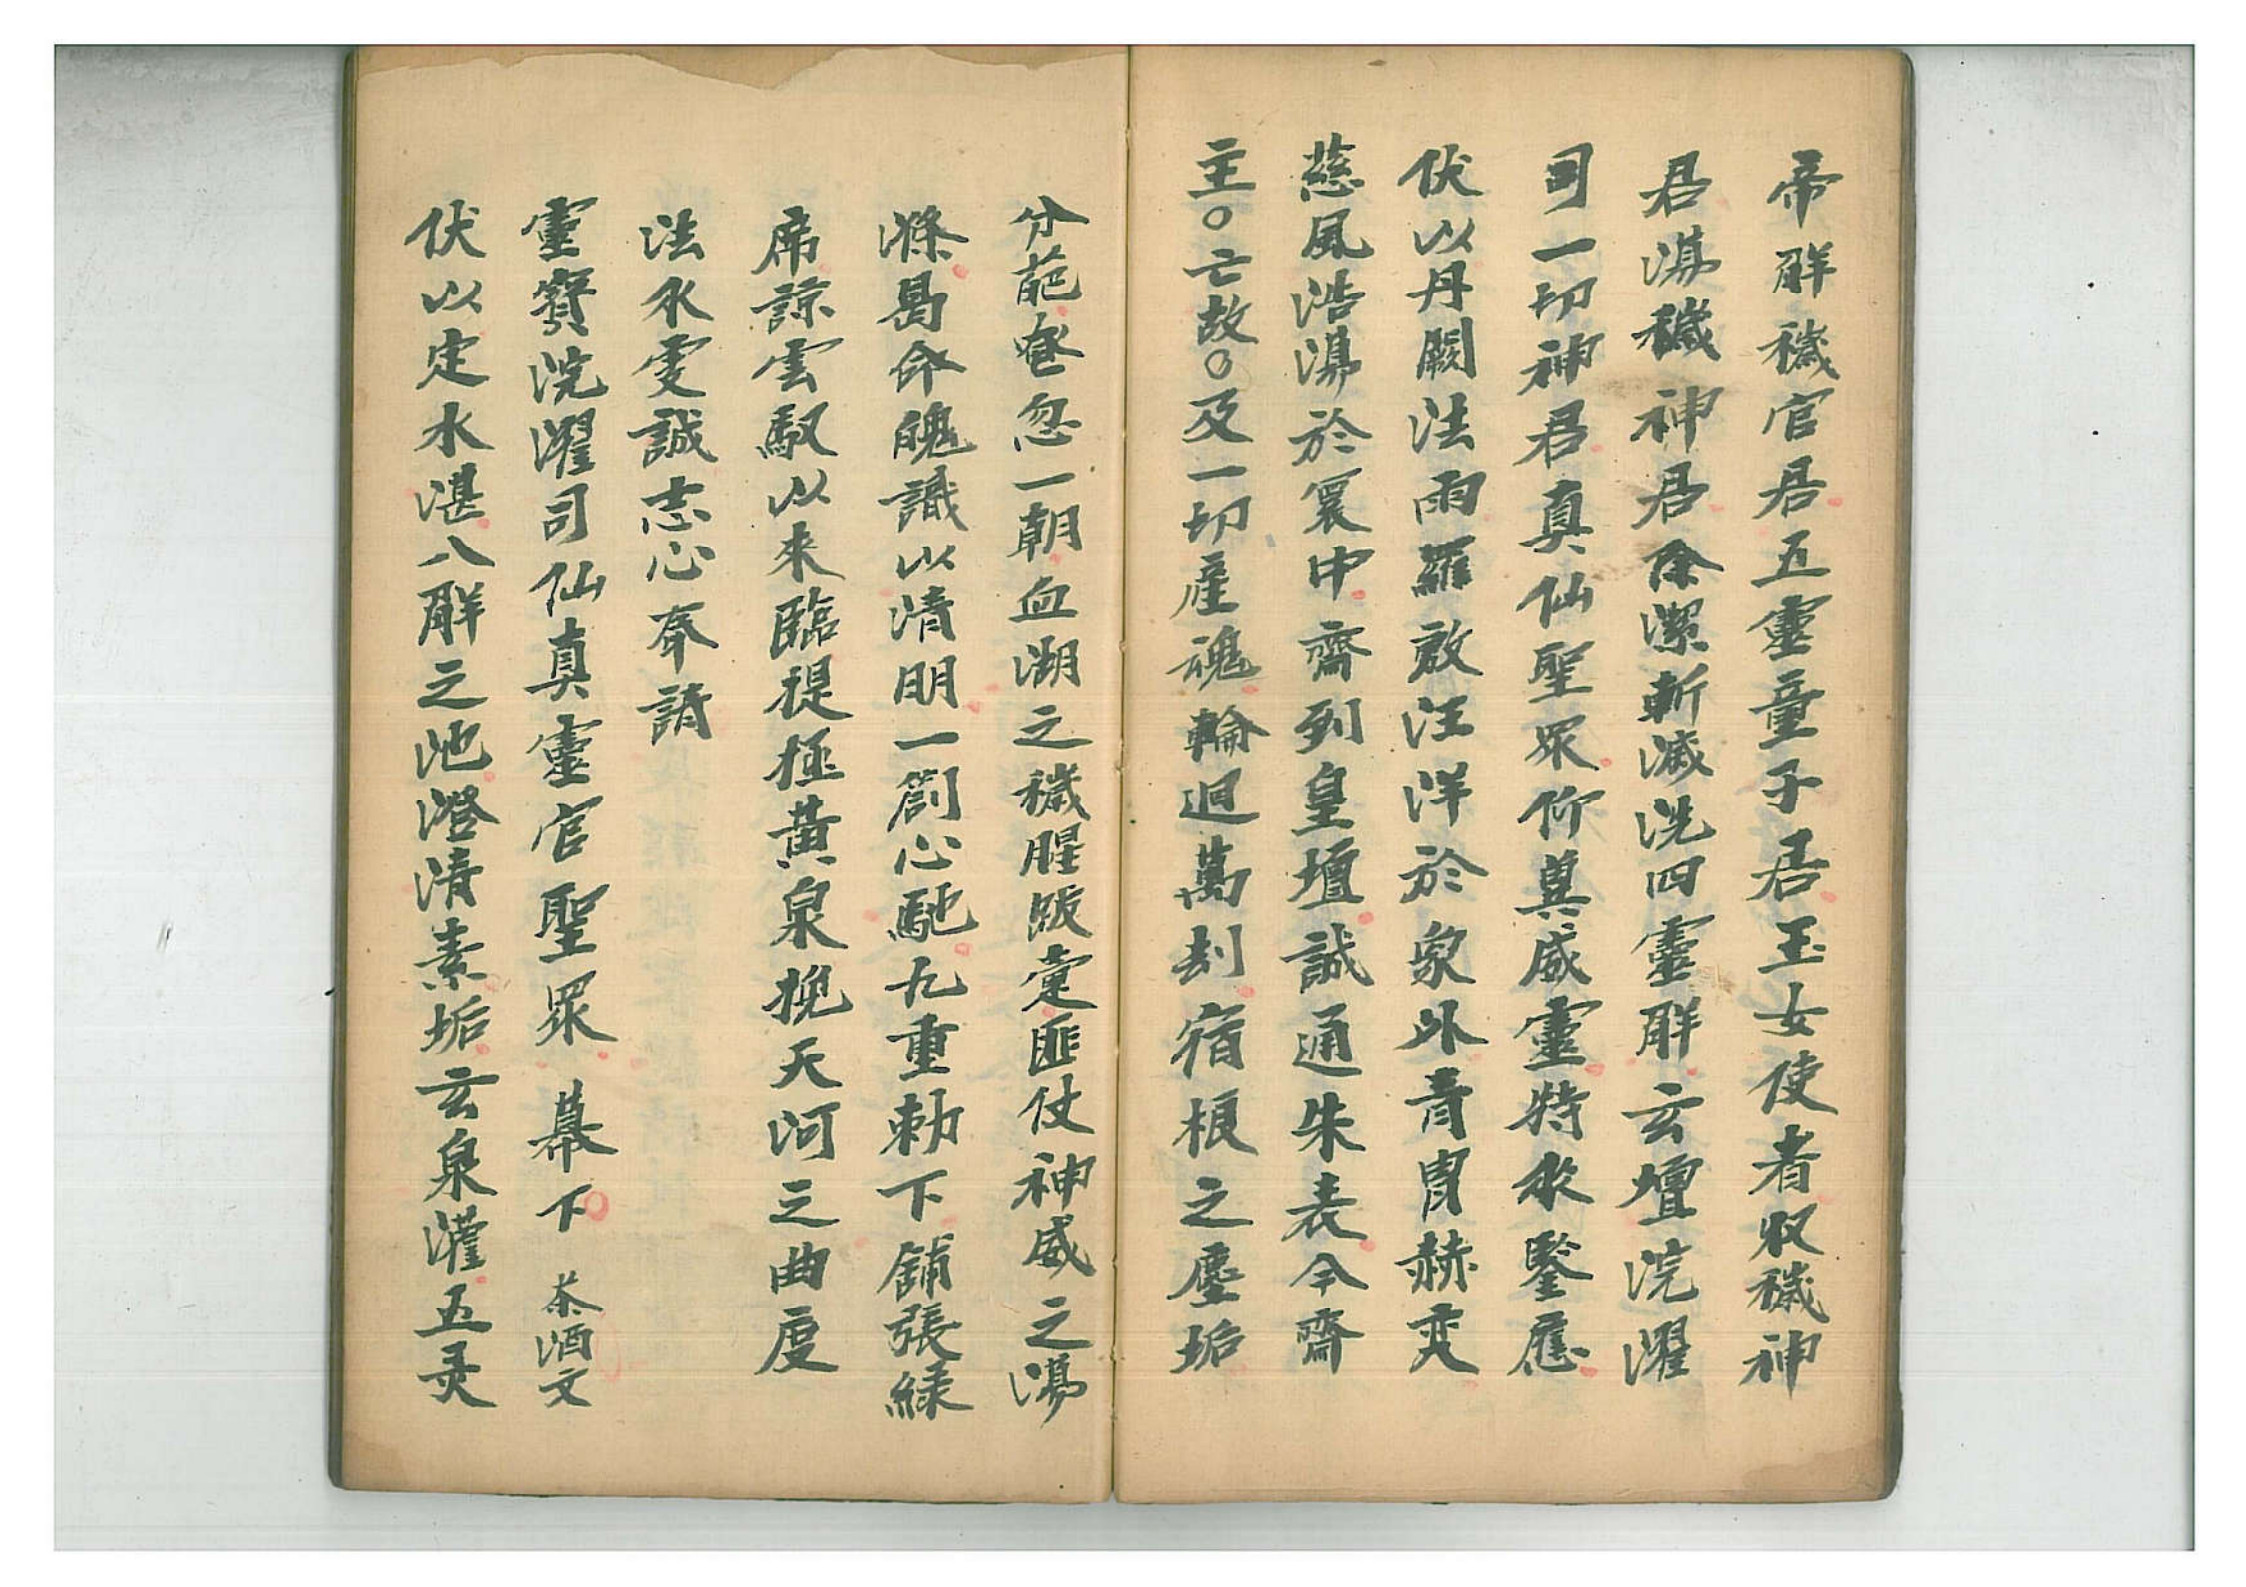 帝解穢官君五靈童子君玉女使者収穢神
君蕩穢神君除潔斬滅洗四靈解玄壇浣濯
司一切神君真仙聖眾仰冀威靈特永鑒應
伏以丹闕法雨羅敷汪洋於象外青胃赫奕
慈風浩蕩於寰中齋列皇壇誠通朱表今齋
主〇亡故〇及一切産魂輪迴萬刼宿根之塵垢
分葩㤙忽一朝血湖之穢腥皈㝎匪仗神威之蕩
滌曷令魄識以清明一劄心馳九重勅下舖張緑
席諒雲馭以来臨禔極黃泉挽天河三曲度
法水雯誠志心奉請
靈寶浣濯司仙真靈官聖眾 幕下 茶酒文
伏以定水湛八解之池澄清素垢玄泉灌五灵